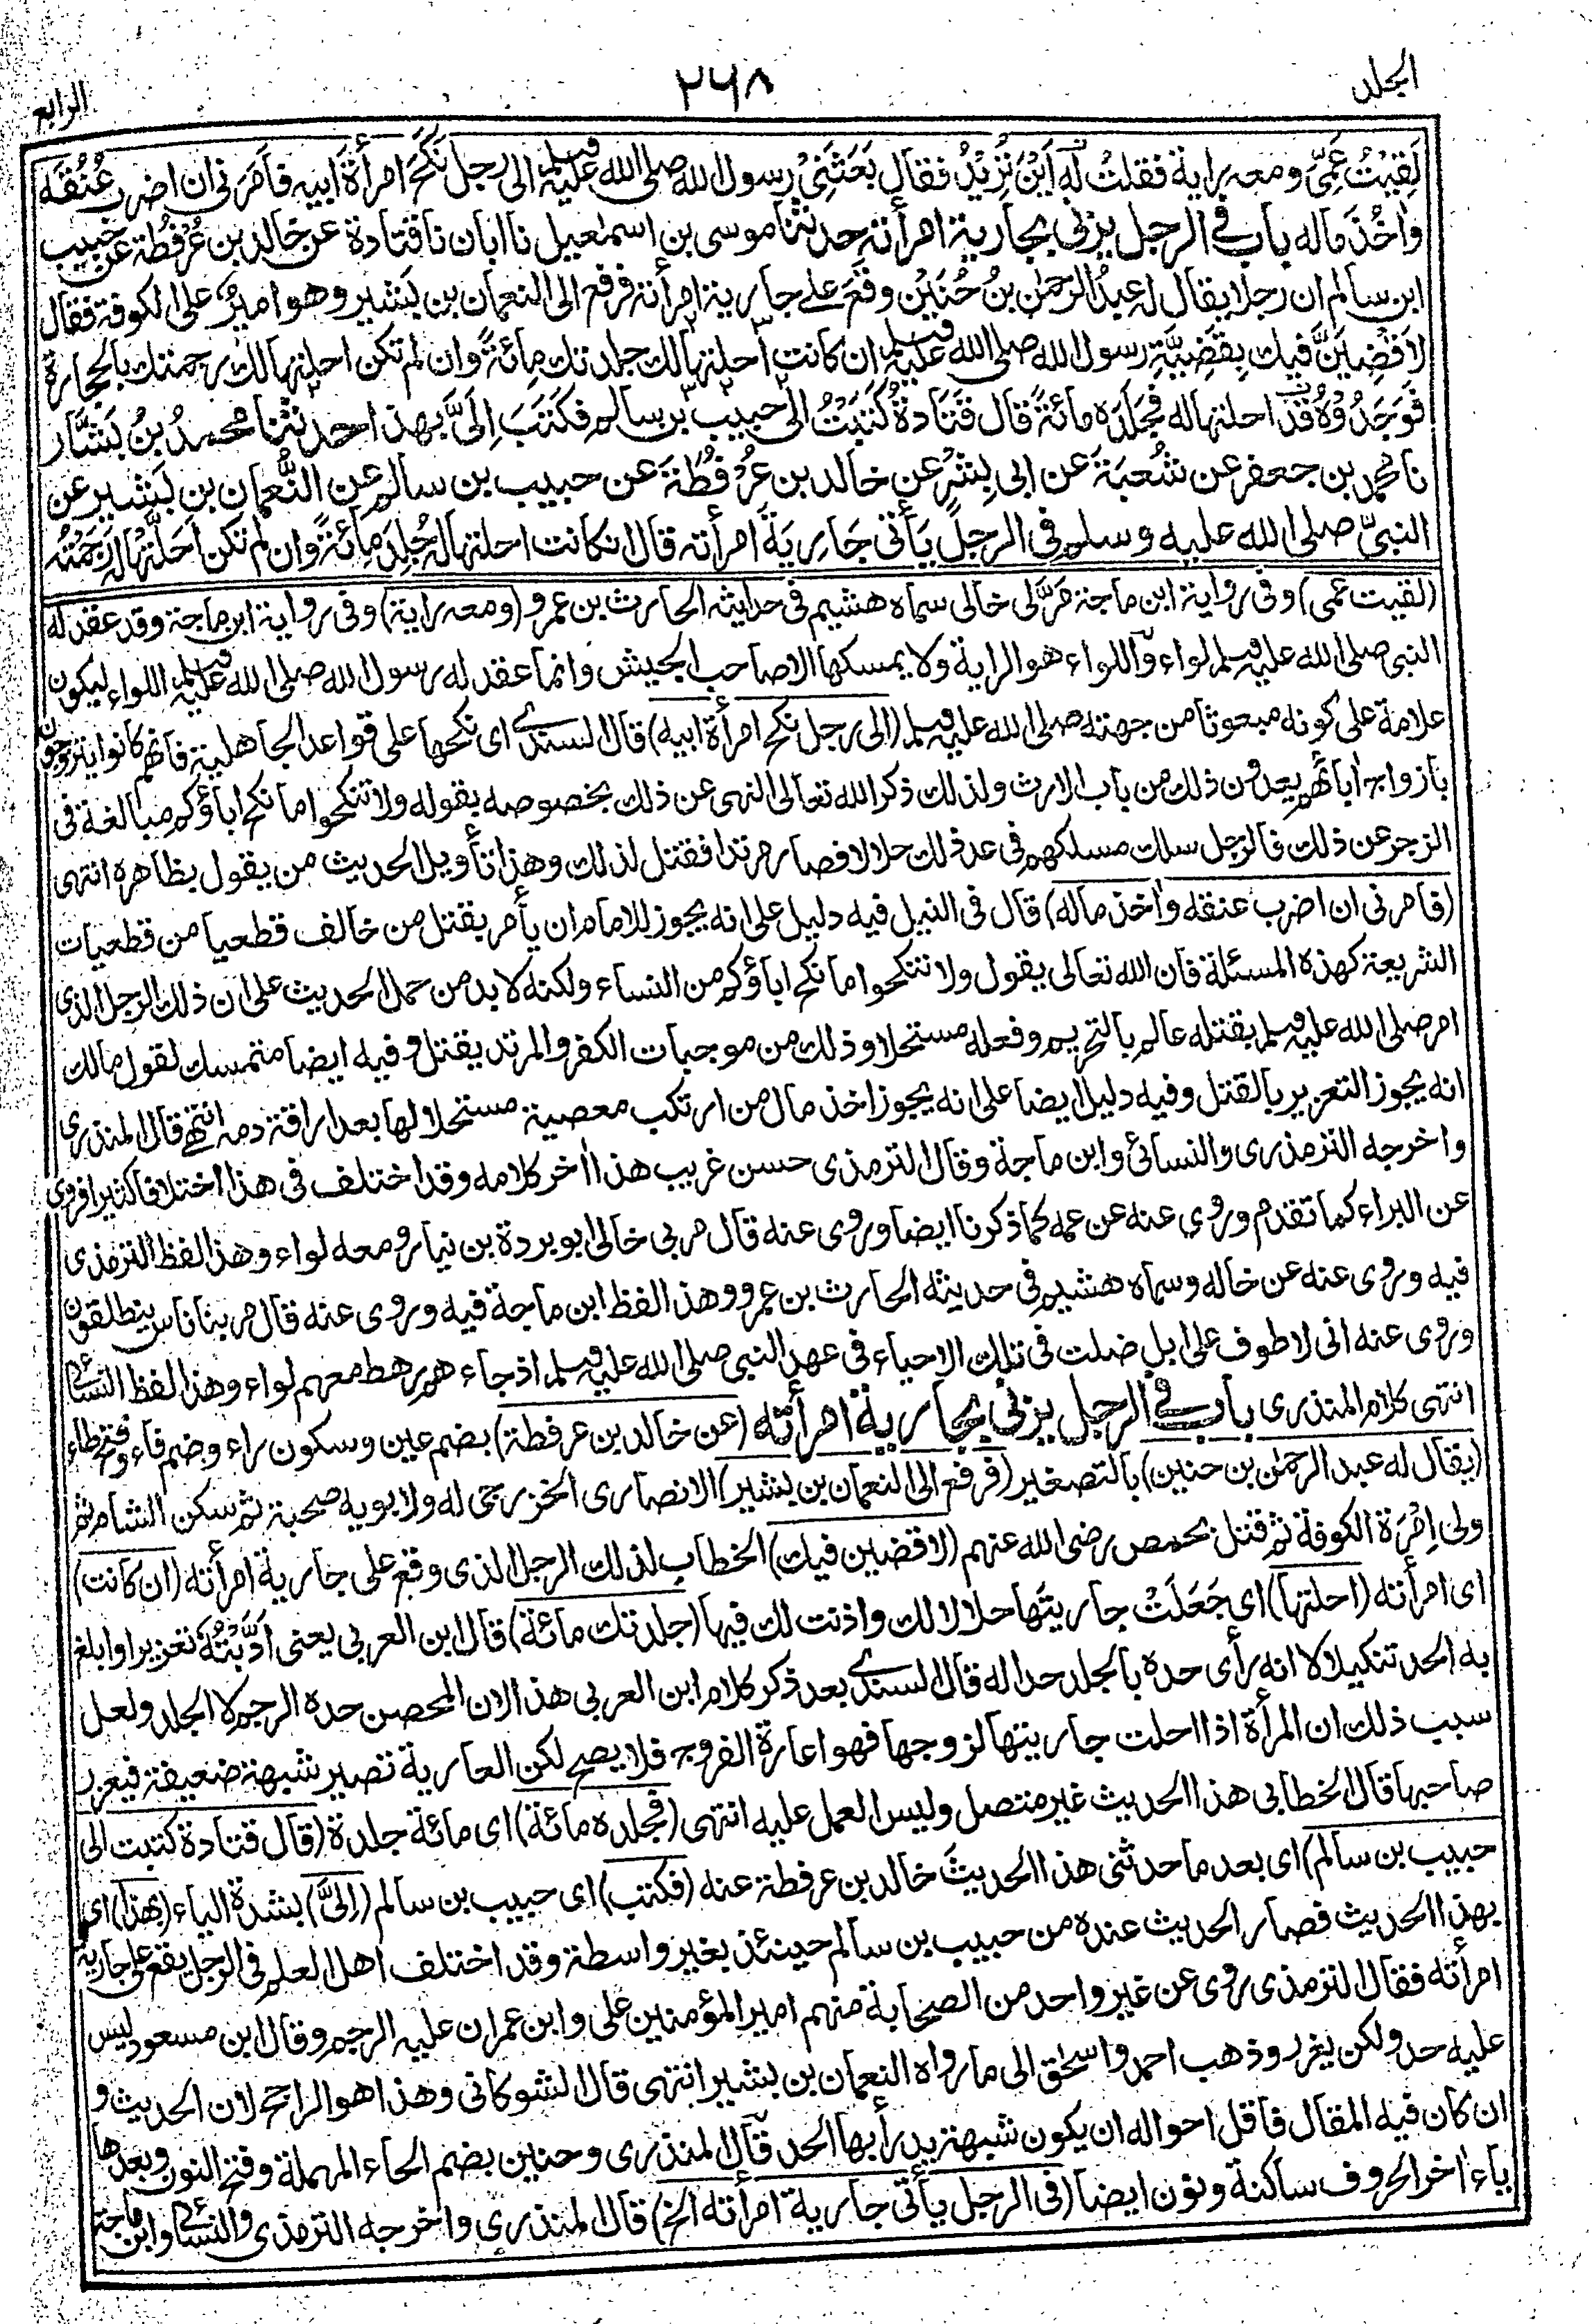 المجلد
٢٦٨
الرابع
لَقِيْتُ عَمِّيْ ومعه راية فقلتُ له اَيْنَ تُرِيْدُ فقال بَعَثَنِيْ رسول الله صلى الله عليه وسلم الى رجل نَكَحَ امرأةَ ابيه فاَمَرَنى ان اضرب عُنُقَه
واٰخُذَ ماله باب فى الرجل يزنى بجارية امرأته حدثنا موسى بن اسمٰعيل نا ابان نا قتادة عن خالد بن عُرْفُطة عن حبيب
ابن سالم ان رجلا يقال له عبدُ الرحمٰن بنُ حُنَيْن وقَعَ على جارية امرأته فرفع الى النعمان بن بَشير وهو اميرٌ على الكوفة فقال
لاَقْضِيَنَّ فيك بِقَضِيَّةِ رسول الله صلى الله عليه وسلم ان كانت اَحلتها لك جلدتك مائةً وان لم تكن احلتها لك رجمتك بالحجارة
فَوَجَدُوْهُ قد احلتها له فجَلَدَه مائةً قال قتَادَةُ كَتَبْتُ الى حبيب بن سالم فكَتَبَ اِلَيَّ بهذا حدثنا محمدُ بنُ بَشَّار
نا محمد بن جعفر عن شُعبَةَ عن ابى بِشْرٍ عن خالد بن عُرْفُطَةَ عن حبيب بن سالم عن النُّعمان بن بَشير عن
النبيّ صلى الله عليه وسلم فى الرجل يَأتى جَارِيَةَ امرأته قال ان كانت احلتها له جُلِدَ مِائةً وان لم تكن اَحَلَّتْها له رَجَمْتُه
(لقيت عمى) وفى رواية ابن ماجة مَرَّ بى خالى سماه هشيم فى حديثه الحارث بن عمرو (ومعه راية) وفى رواية ابن ماجة وقد عقد له
النبى صلى الله عليه وسلم لواء واللواء هو الراية ولا يمسكها الا صاحب الجيش وانما عقد له رسول الله صلى الله عليه وسلم اللواء ليكون
علامة على كونه مبعوثا من جهته صلى الله عليه وسلم (الى رجل نكح امرأة ابيه) قال السندى اى نكحها على قواعد الجاهلية فانهم كانوا يتزوجون
بازواج اٰبائهم يعدون ذلك من باب الارث ولذلك ذكر الله تعالى النهى عن ذلك بخصوصه بقوله ولا تنكحوا ما نكح اٰباؤكم مبالغة فى
الزجر عن ذلك فالرجل سلك مسلكهم فى عد ذلك حلالا فصار مرتدا فقتل لذلك وهذا تأويل الحديث من يقول بظاهره انتهى
(فامرنى ان اضرب عنقه واٰخذ ماله) قال فى النيل فيه دليل على انه يجوز للامام ان يأمر بقتل من خالف قطعيا من قطعيات
الشريعة كهذه المسئلة فان الله تعالى يقول ولا تنكحوا ما نكح اٰباؤكم من النساء ولكنه لا بد من حمل الحديث على ان ذلك الرجل الذى
امر صلى الله عليه وسلم بقتله عالم بالتحريم وفعله مستحلا وذلك من موجبات الكفر والمرتد يقتل وفيه ايضا متمسك لقول مالك
انه يجوز التعزير بالقتل وفيه دليل ايضا على انه يجوز اخذ مال من ارتكب معصية مستحلا لها بعد اراقة دمه انتهى قال المنذرى
واخرجه الترمذى والنسائى وابن ماجة وقال الترمذى حسن غريب هذا اٰخر كلامه وقد اختلف فى هذا اختلافا كثيرا فروى
عن البراء كما تقدم وروى عنه عن عمه كما ذكرنا ايضا وروى عنه قال مر بى خالى ابو بردة بن نيار ومعه لواء وهذا لفظ الترمذى
فيه وروى عنه عن خاله وسماه هشيم فى حديثه الحارث بن عمرو وهذا لفظ ابن ماجة فيه وروى عنه قال مر بنا ناس ينطلقون
وروى عنه انى لاطوف على ابل ضلت فى تلك الاحياء فى عهد النبى صلى الله عليه وسلم اذ جاء هم رهط معهم لواء وهذا لفظ النسائى
انتهى كلام المنذرى باب فى الرجل يزنى بجارية امرأته (عن خالد بن عرفطة) بضم عين وسكون راء وضم فاء وفتح طاء
(يقال له عبد الرحمٰن بن حنين) بالتصغير (فرفع الى النعمان بن بشير) الانصارى الخزرجى له ولابويه صحبة ثم سكن الشام ثم
ولى اِمْرَة الكوفة ثم قتل بحمص رضى الله عنهم (لاقضين فيك) الخطاب لذلك الرجل الذى وقع على جارية امرأته (ان كانت)
اى امرأته (احلتها) اى جَعَلَتْ جاريتَها حلالا لك واذنت لك فيها (جلدتك مائة) قال ابن العربى يعنى اَدَّبْتُه تعزيرا وابلغ
به الحد تنكيلا لا انه رأى حده بالجلد حدا له قال السندى بعد ذكر كلام ابن العربى هذا لان المحصن حده الرجم لا الجلد ولعل
سبب ذلك ان المرأة اذا احلت جاريتها لزوجها فهو اعارة الفروج فلا يصح لكن العارية تصير شبهة ضعيفة فيعزر
صاحبها قال الخطابى هذا الحديث غير متصل وليس العمل عليه انتهى (فجلده مائة) اى مائة جلدة (قال قتادة كتبت الى
حبيب بن سالم) اى بعد ما حدثنى هذا الحديثَ خالد بن عرفطة عنه (فكتب) اى حبيب بن سالم (اِلَيَّ) بشدة الياء (بهذا) اى
بهذا الحديث فصار الحديث عنده من حبيب بن سالم حينئذ بغير واسطة وقد اختلف اهل العلم فى الرجل يقع على جارية
امرأته فقال الترمذى روى عن غير واحد من الصحابة منهم امير المؤمنين على وابن عمر ان عليه الرجم وقال ابن مسعود ليس
عليه حد ولكن يعزر وذهب احمد واسحٰق الى ما رواه النعمان بن بشير انتهى قال الشوكانى وهذا هو الراجح لان الحديث و
ان كان فيه المقال فاقل احواله ان يكون شبهة يدرأ بها الحد قال المنذرى وحنين بضم الحاء المهملة وفتح النون وبعدها
ياء اٰخر الحروف ساكنة ونون ايضا (فى الرجل يأتى جارية امرأته الخ) قال المنذرى واخرجه الترمذى والنسائى وابن ماجة